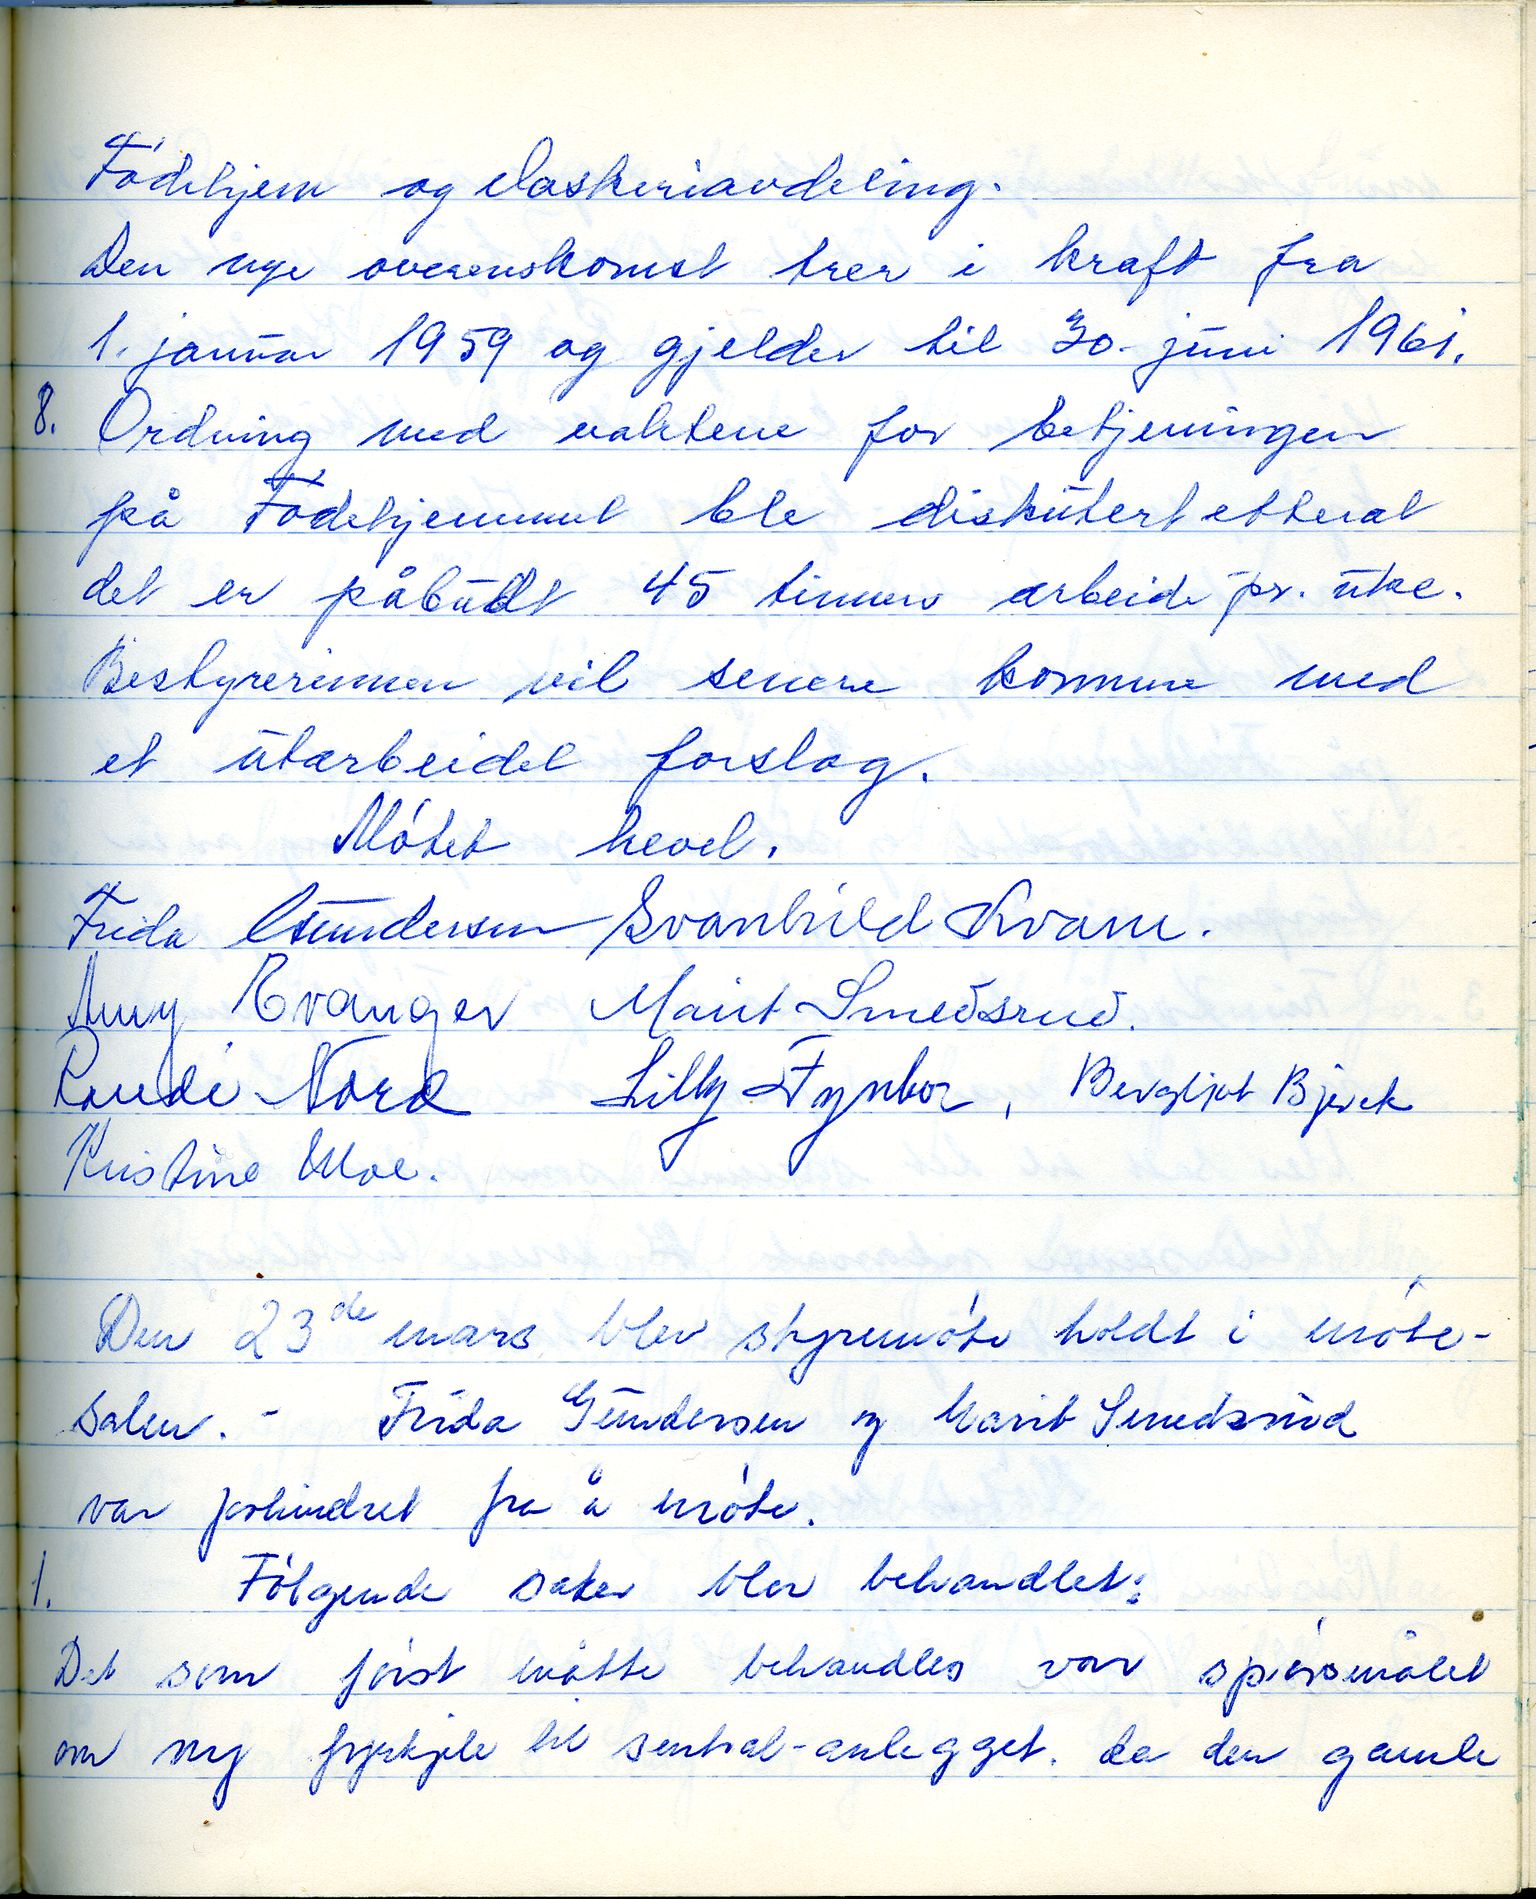 Fødehjem og vaskeriavdeling.
Den nye overenskomst trer i kraft fra
1. januar 1959 og gjelder til 30. juni 1961.
8. Ordning med vaktene for betjeningen
på Fødehjemmet ble diskutert etterat
det er påbudt 45 timers arbeide pr. uke.
Bestyrerinnen vil senere komme med
et utarbeidet forslag.
Møtet hevet.
Frida Gundersen Svanhild Kvam.
Amy Evanger Marit Smedsrud.
Randi Nord Lilly Fynbor, Bergljot Bjerck
Kristine Moe.
Den 23de mars blev styremøte holdt i møte-
salen. - Frida Gundersen og Marit Smedsrud
var forhindret fra å møte.
1. Følgende saker blev behandlet:
Det som først måtte behandles var spørsmålet
om ny fyrkjele til sentral-anlegget. da den gamle